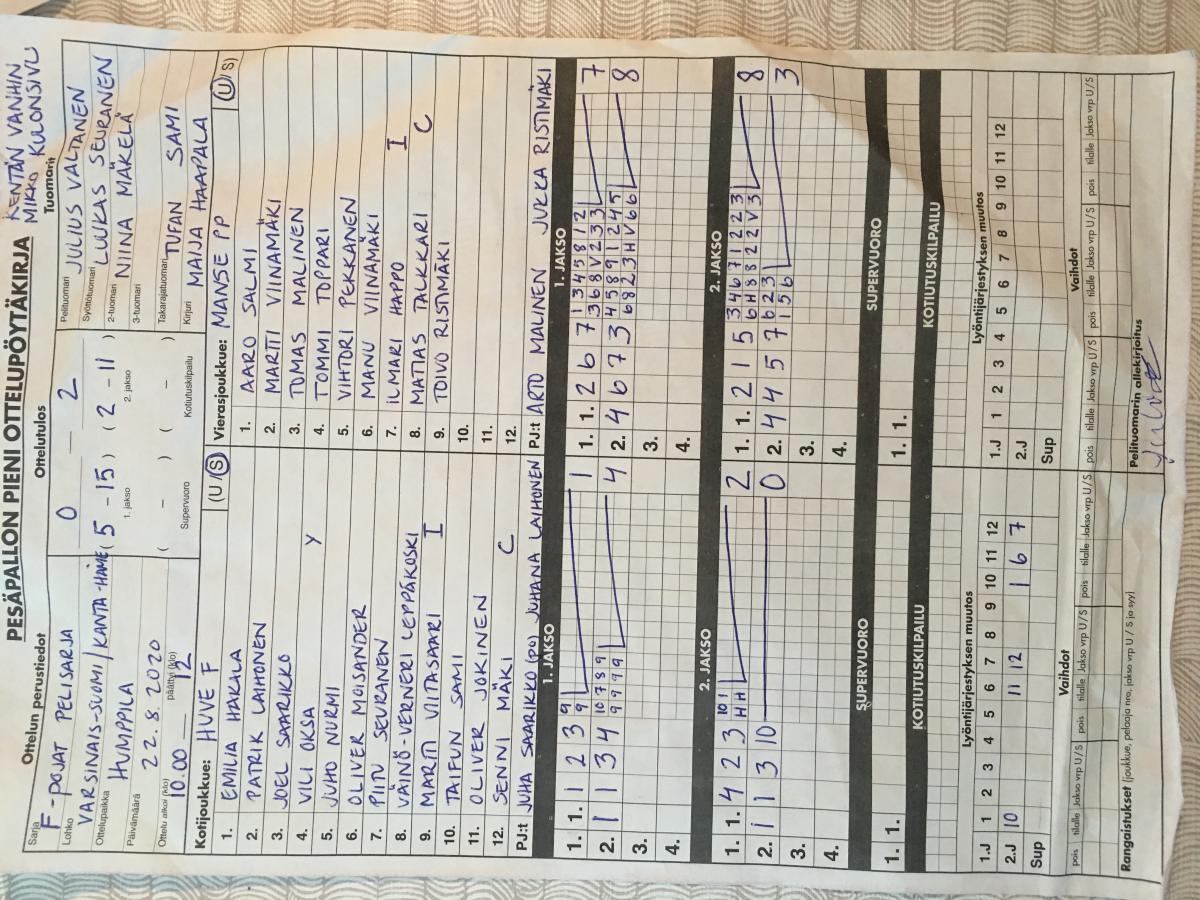 PESÄPALLON PIENI OTTELUPÖYTÄKIRJA
KENTÄN VANHIN
MIKKO KULONSIVU
Ottelun perustiedot
Ottelutulos
Tuomarit
Sarja
F-POJAT PELISARJA
Lohko
VARSINAIS-SUOMI/KANTA-HÄME
Ottelupaikka
HUMPPILA
Päivämäärä
22.8.2020
Ottelu alkoi (klo)
10.00
päättyi (klo)
12
0 — 2
(5 - 15) (2 - 11)
1. jakso 2. jakso
( - ) ( - )
Supervuoro Kotiutuskilpailu
Pelituomari JULIUS VALTANEN
Syöttötuomari LUUKAS SEURANEN
2-tuomari NIINA MÄKELÄ
3-tuomari
Takarajatuomari TUFAN SAMI
Kirjuri MAIJA HAAPALA
Kotijoukkue: HUVE F (U/S)
1. EMILIA HAKALA
2. PATRIK LAIHONEN
3. JOEL SAARIKKO
4. VILI OKSA Y
5. JUHO NURMI
6. OLIVER MOISANDER
7. PIITU SEURANEN
8. VÄINÖ-VERNERI LEPPÄKOSKI
9. MARTTI VIITASAARI I
10. TAIFUN SAMI
11. OLIVER JOKINEN
12. SENNI MÄKI C
PJ:t JUHA SAARIKKO (PO) JUHANA LAIHONEN
Vierasjoukkue: MANSE PP (U/S)
1. AARO SALMI
2. MARTTI VIINAMÄKI
3. TUOMAS MALINEN
4. TOMMI TOPPARI
5. VIHTORI PEKKANEN
6. MANU VIINAMÄKI
7. ILMARI HAPPO I
8. MATIAS TALKKARI C
9. TOIVO RISTIMÄKI
10.
11.
12.
PJ:t ARTO MALINEN JUKKA RISTIMÄKI
1. JAKSO
1. 1. 1 2 3 9 1
9
2. 1 3 4 10 7 8 9 4
9 9 9 9
3.
4.
1. JAKSO
1. 1. 2 6 7 1 3 4 5 8 1 2 7
3 6 8 V 2 3 3
2. 4 6 7 3 4 5 8 9 1 2 4 5 8
6 8 2 3 H V 6 6
3.
4.
2. JAKSO
1. 1. 4 2 3 10 1 2
H H
2. 1 1 3 10 0
3.
4.
2. JAKSO
1. 1. 2 1 5 3 4 6 7 1 2 2 3 8
6 H 8 8 2 2 V 3
2. 4 4 5 7 6 2 3 3
1 5 6
3.
4.
SUPERVUORO
1. 1.
SUPERVUORO
1. 1.
KOTIUTUSKILPAILU
KOTIUTUSKILPAILU
Lyöntijärjestyksen muutos
1.J 1 2 3 4 5 6 7 8 9 10 11 12
2.J 10 11 12 1 6 7
Sup
Lyöntijärjestyksen muutos
1.J 1 2 3 4 5 6 7 8 9 10 11 12
2.J
Sup
Vaihdot
pois tilalle Jakso vrp U/S pois tilalle Jakso vrp U/S pois tilalle Jakso vrp U/S
Vaihdot
pois tilalle Jakso vrp U/S pois tilalle Jakso vrp U/S pois tilalle Jakso vrp U/S
Rangaistukset (joukkue, pelaaja nro, jakso vrp U / S ja syy)
Pelituomarin allekirjoitus